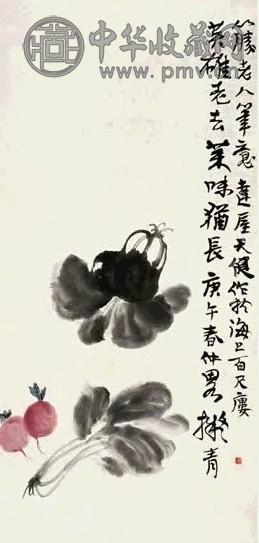 中华收藏网
英雄老去菜味猶長庚午春仲畧擬青
籐老人筆意達屋天健作於海上百尺廔